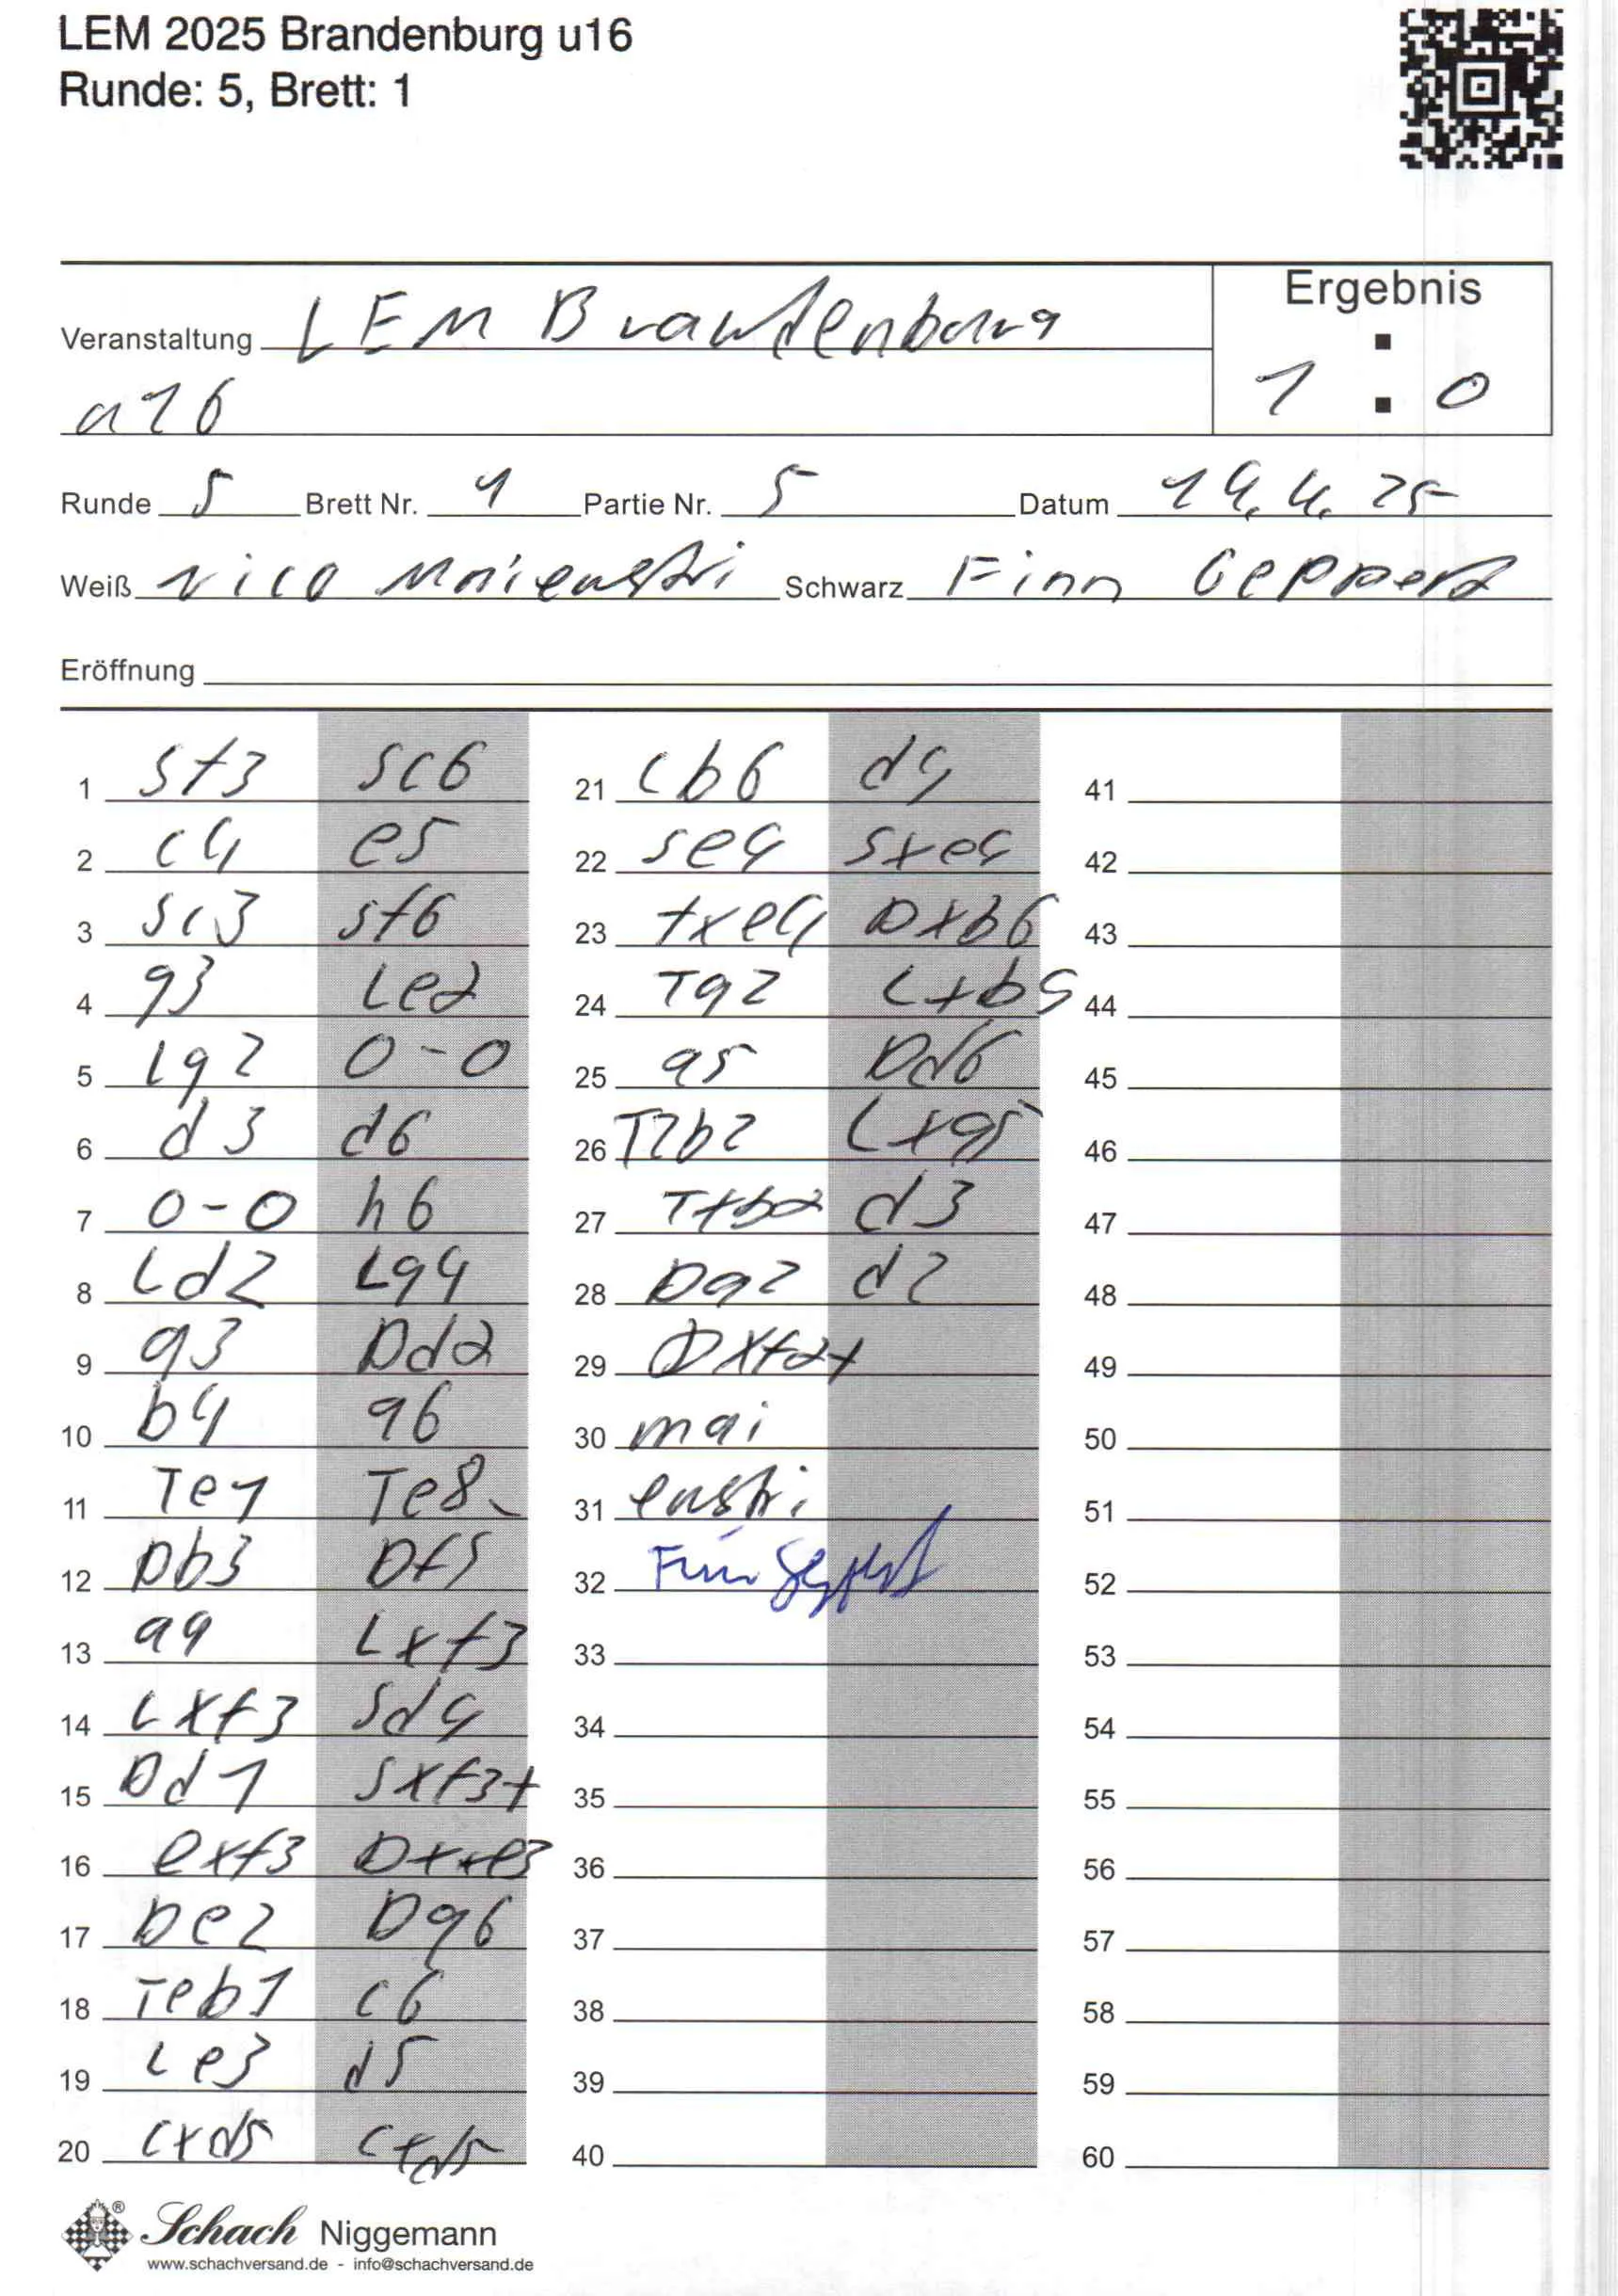 LEM 2025 Brandenburg u16
Runde: 5, Brett: 1
Ergebnis
Veranstaltung LEM Brandenburg
u16
1 : 0
Runde 5 Brett Nr. 1 Partie Nr. 5 Datum 19.4.25
Weiß Nico Schwarz Finn Geppert
Eröffnung
1 Sf3 Sc6
2 c4 e5
3 Sc3 Sf6
4 g3 Le7
5 Lg2 0-0
6 d3 d6
7 0-0 h6
8 Ld2 Lg4
9 a3 Dd7
10 b4 a6
11 Te1 Te8
12 Db3 Df5
13 a4 Lxf3
14 Lxf3 Sd4
15 Dd1 Sxf3+
16 exf3
17 De2 Dg6
18 Teb1 c6
19 Le3 d5
20 cxd5 cxd5
21 Lb6 d4
22 Se4 Sxe4
23 fxe4 Dxb6
24 Ta2 Lxb4
25 a5 Dd6
26 T2b2 Lxa5
27 Txb7 d3
28 Da2 d2
29 Dxf7+
30 mai
31 enstri
32 Finn Geppert
33
34
35
36
37
38
39
40
41
42
43
44
45
46
47
48
49
50
51
52
53
54
55
56
57
58
59
60
Schach Niggemann
www.schachversand.de - info@schachversand.de